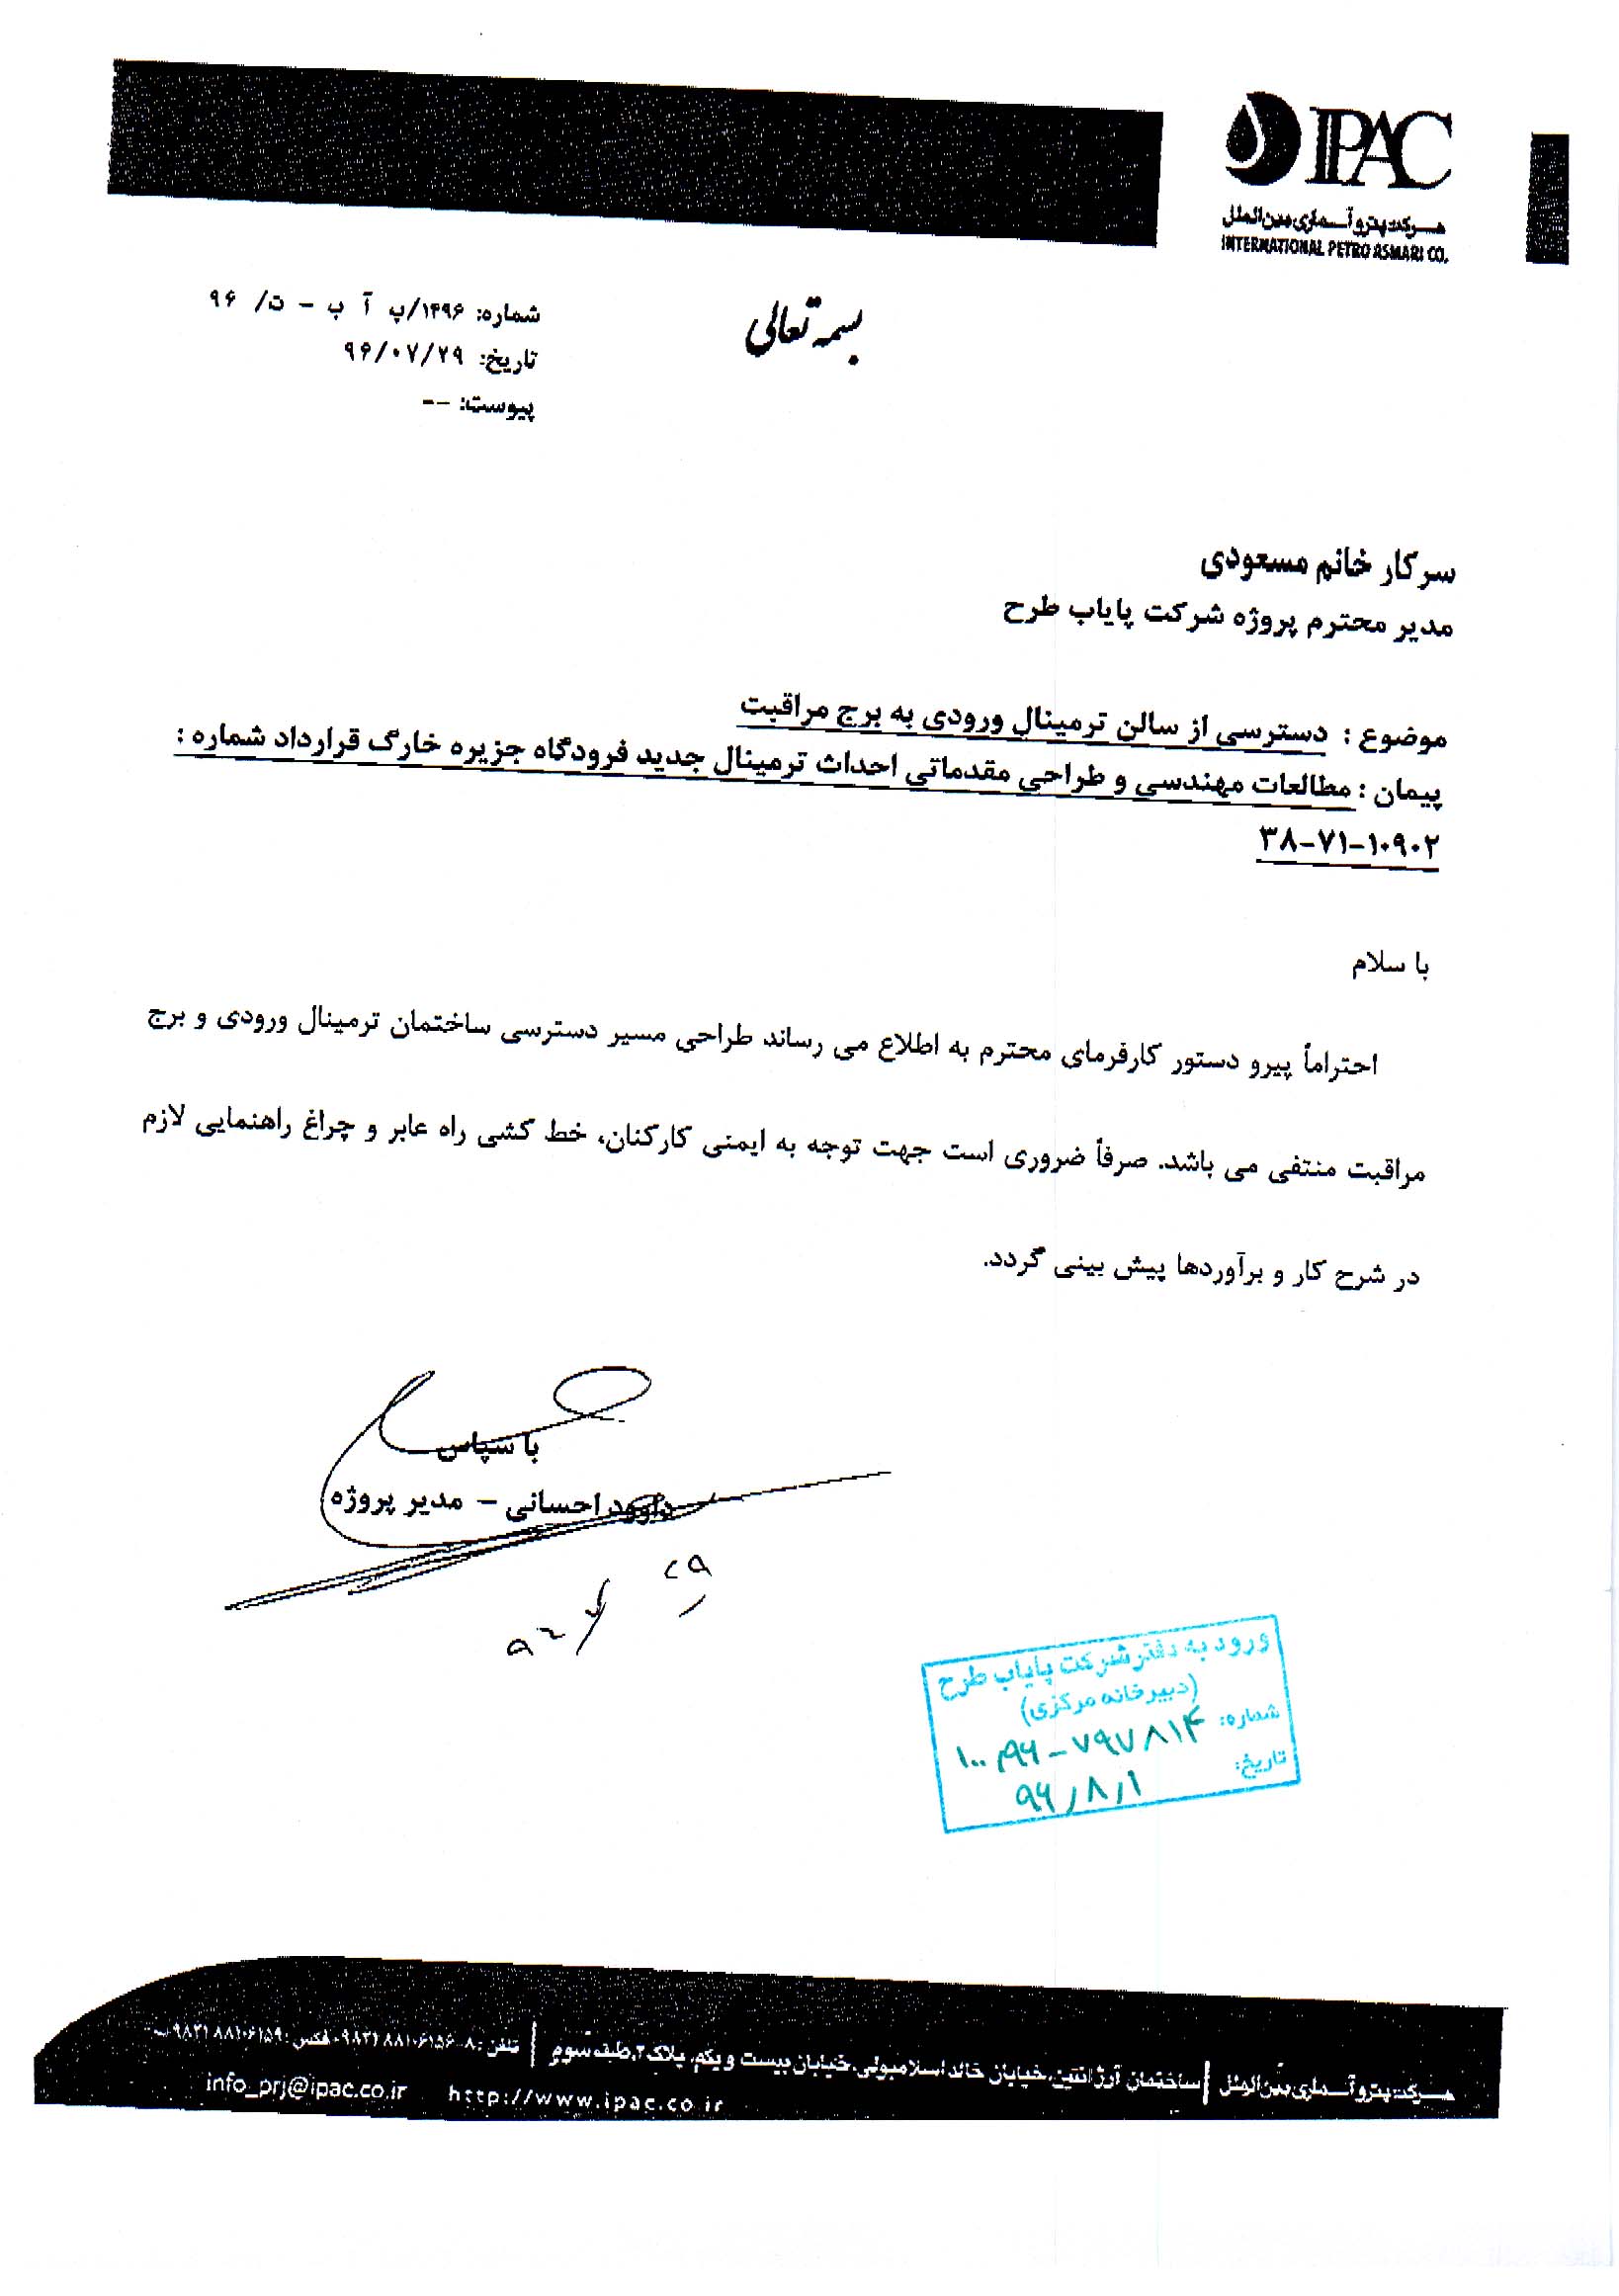 IPAC
شرکت پترو آسماری بین الملل
INTERNATIONAL PETRO ASMARI CO.
بسمه تعالی
شماره: ۱۴۹۶/پ آ ب - ت/ ۹۶
تاریخ: ۹۶/۰۷/۲۹
پیوست: --
سرکار خانم مسعودی
مدیر محترم پروژه شرکت پایاب طرح
موضوع : دسترسی از سالن ترمینال ورودی به برج مراقبت
پیمان : مطالعات مهندسی و طراحی مقدماتی احداث ترمینال جدید فرودگاه جزیره خارگ قرارداد شماره :
۳۸-۷۱-۱۰۹۰۲
با سلام
احتراماً پیرو دستور کارفرمای محترم به اطلاع می رساند طراحی مسیر دسترسی ساختمان ترمینال ورودی و برج
مراقبت منتفی می باشد. صرفاً ضروری است جهت توجه به ایمنی کارکنان، خط کشی راه عابر و چراغ راهنمایی لازم
در شرح کار و برآوردها پیش بینی گردد.
با سپاس
داوود احسانی - مدیر پروژه
ورود به دفتر شرکت پایاب طرح
(دبیرخانه مرکزی)
شماره: ۱۰۰م۹۶-۷۹۷۸۱۴
تاریخ: ۹۶/۸/۱
شرکت پترو آسماری بین الملل | ساختمان آرژانتین، خیابان خالد اسلامبولی، خیابان بیست و یکم، پلاک ۲، طبقه سوم | تلفن :
info_prj@ipac.co.ir http://www.ipac.co.ir